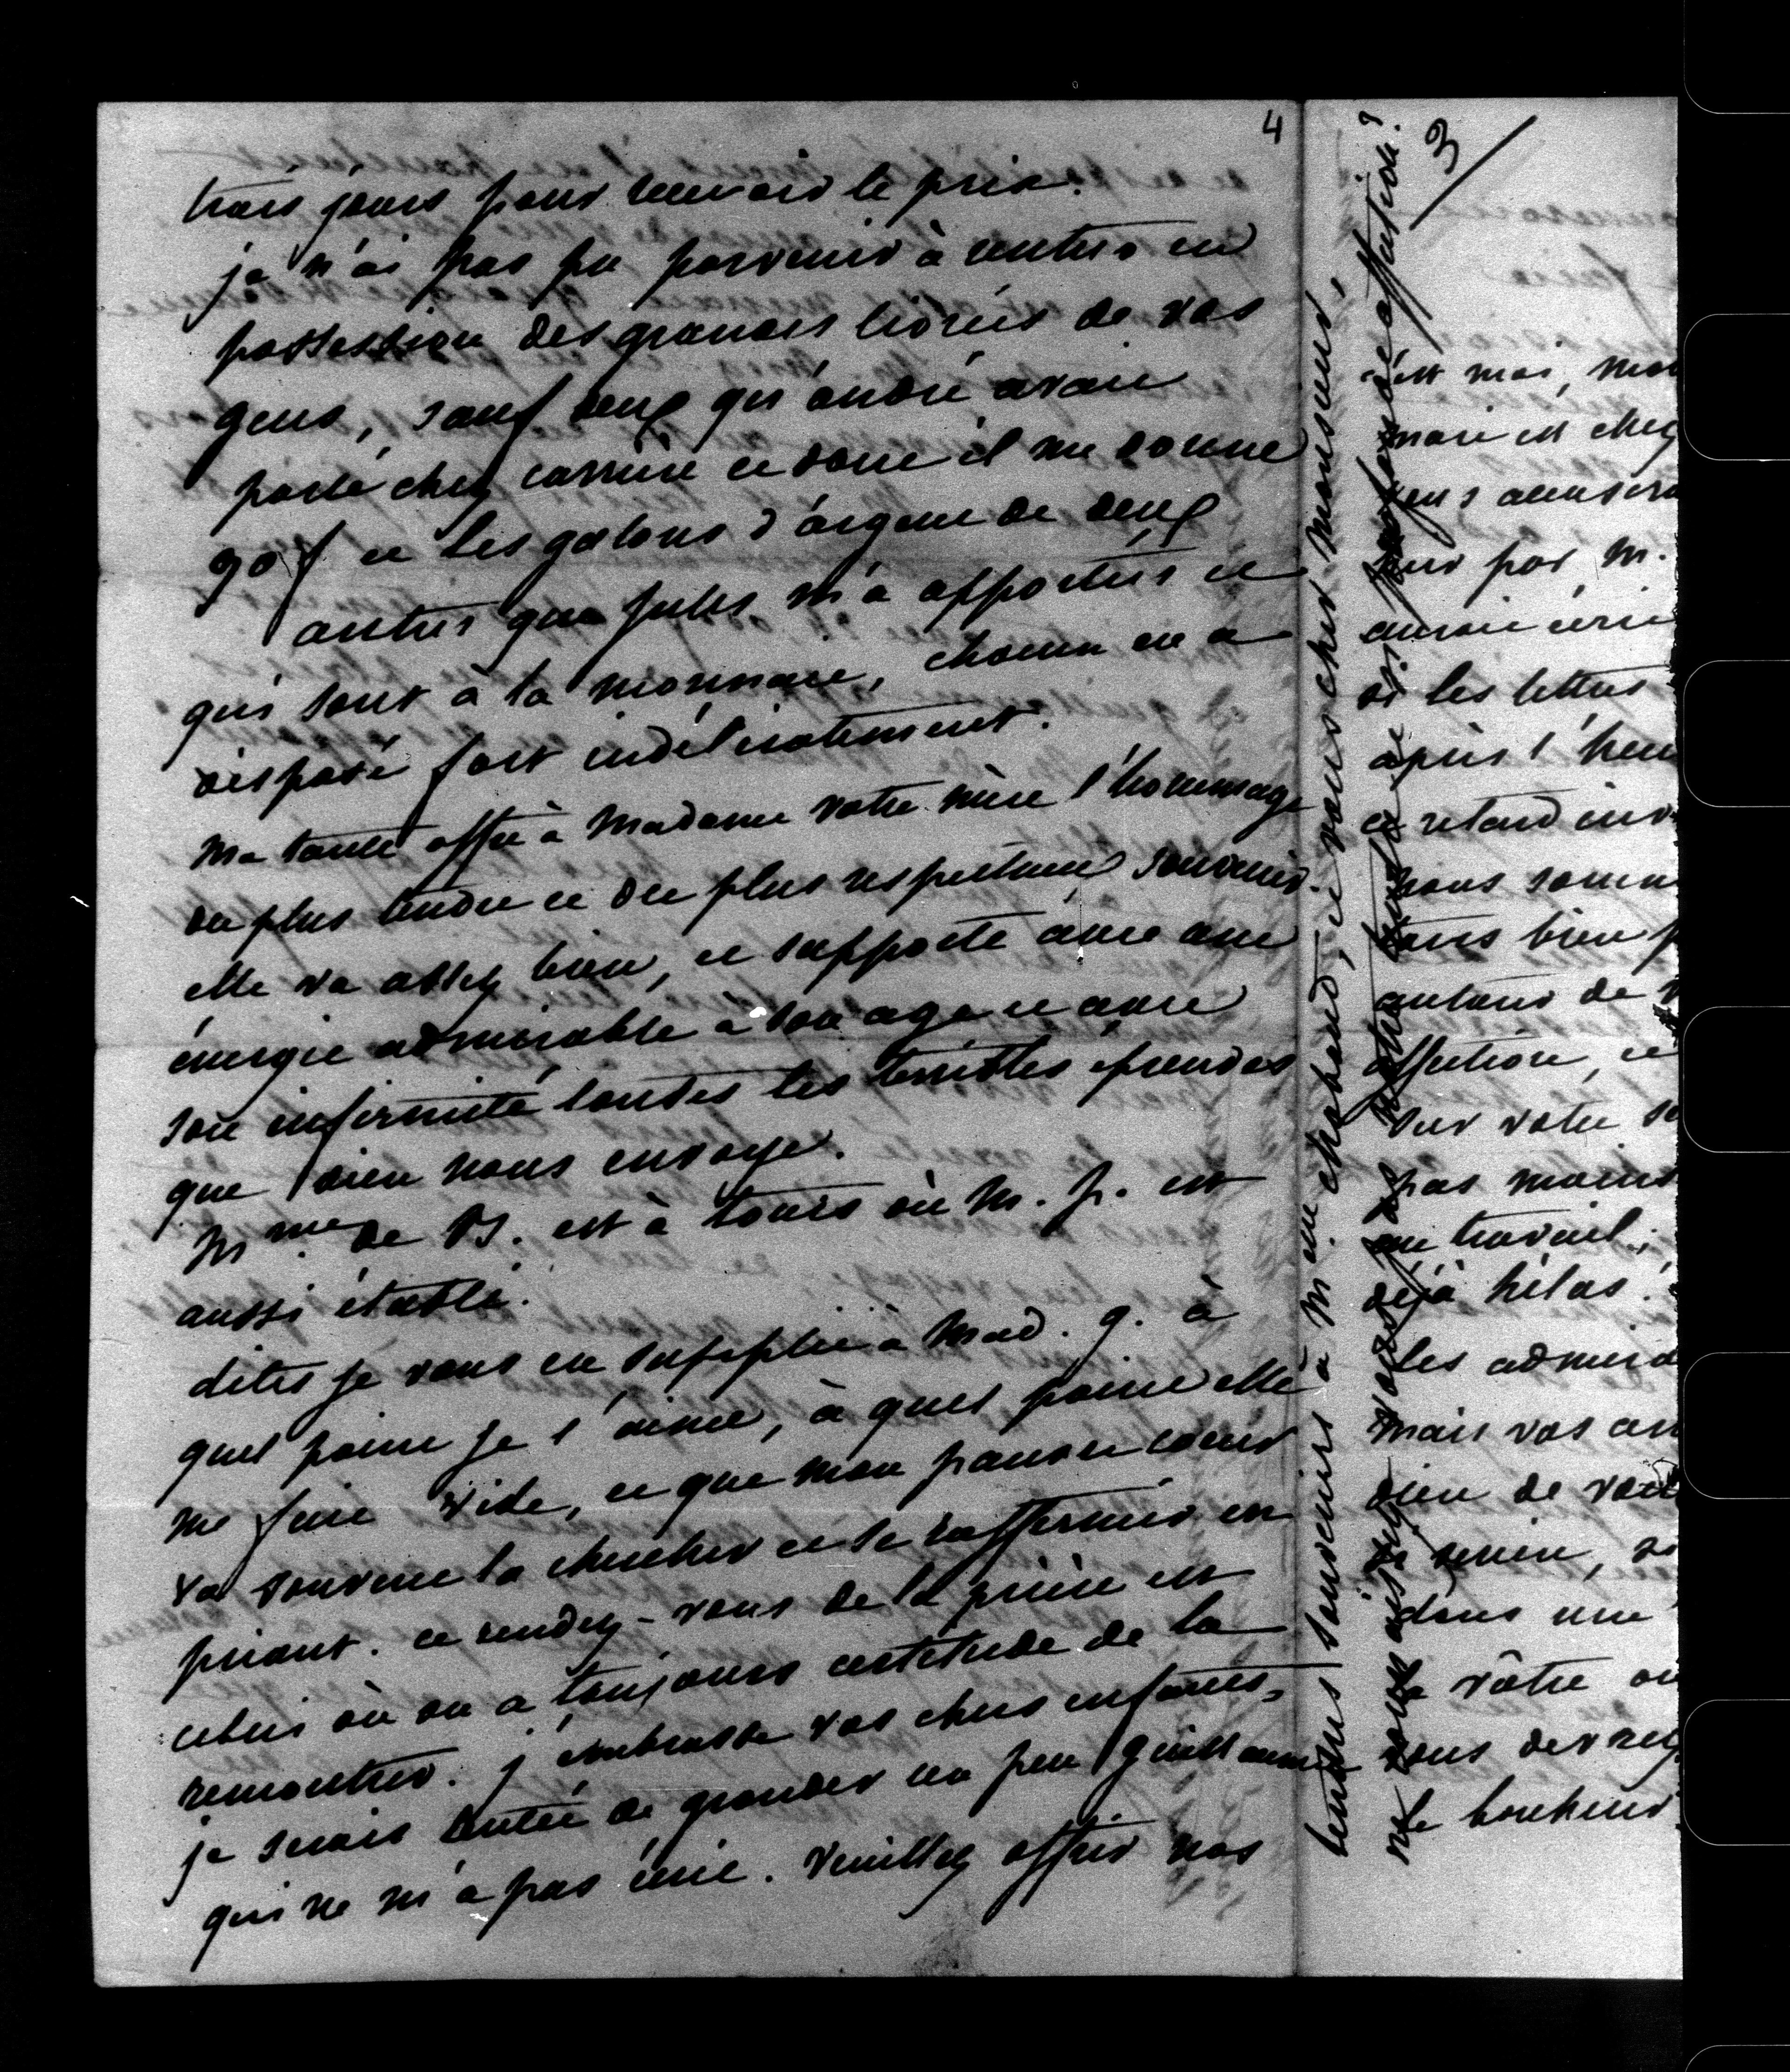 4
trois jours pour recevoir le prix.
je n'ai pas pu parvenir à rentrer en
possession des grandes livrées de vos
gens, sauf deux qu'andré avait
porté chez carrière et dont il me donne
90 f et les galons d'argent de deux
autres que jules m'a apportées et
qui sont à la monnaie, chacun en a
disposé fort indélicatement.
Ma tante offre à Madame votre mère l'hommage
du plus tendre et du plus respectueux souvenir.
elle va assez bien, et supporte avec une
énergie admirable à son age et avec
son infirmité toutes les terribles épreuves
que dieu nous envoye.
Mme de B. est à tours où M. p. est
aussi établi.
dites je vous en supplie à Mad. g. à
quel point je l'aime, à quel point elle
me fait vide, et que mon pauvre coeur
va souvent la chercher et se raffermir en
priant. ce rendez-vous de la prière est
celui où on a toujours certitude de la
rencontrer. j'embrasse vos chers enfants,
je serais tentée de gronder un peu guillaume
qui ne m'a pas écrit. veuillez offrir nos
tendres souvenirs à M. au chaband, et vous cher Monsieur,
vous assez votre tendre et si profonde affection?
3
est moi, mon
mari est chez
vous accusera
jour par M.
aurait écrit
si les lettres
après l'heu
ce retard inv
nous somm
tous bien p
autour de v
affection, et
sur votre so
pas moins
au travail,
déjà hélas!
les admira
Mais vos am
dieu de vou
si serein, si
dans une
la vôtre ou
vous devriez
le bonheur